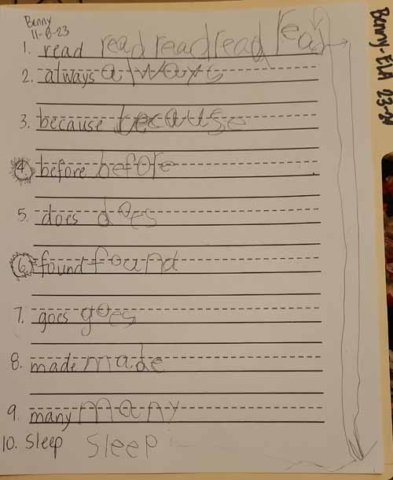 Benny
11-6-23
1. read read read read read
2. always always
3. because because
4. before before
5. does does
6. found found
7. goes goes
8. made made
9. many many
10. Sleep Sleep
Benny-ELA 23-24